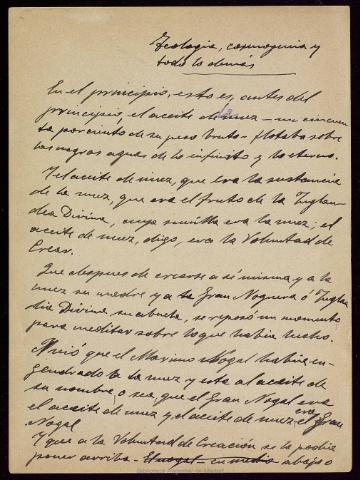 Teología, cosmogonía y
todo lo demás
En el principio, esto es, antes del
principio, el aceite de nuez - un cincuen
ta por ciento de su peso bruto - flotaba sobre
las negras aguas de lo infinito y lo eterno.
Y el aceite de nuez, que era la sustancia
de la nuez, que era el fruto de la Juglan
dea Divina, cuya semilla era la nuez; el
aceite de nuez, digo, era la Voluntad de
Crear.
Que después de crearse a sí misma y a la
nuez su madre y a la Gran Noguera ó Jugla
dea Divina, su abuela, se reposó un momento
para meditar sobre lo que había hecho.
Y vió que el Máximo Nogal había en-
gendrado la nuez y esta al aceite de
su nombre, o sea, que el Gran Nogal era
el aceite de nuez y el aceite de nuez era el Gran
Nogal
Y que a la Voluntad de Creación se le podía
poner arriba - El nogal - en medio abajo o
Biblioteca Nacional de Madrid